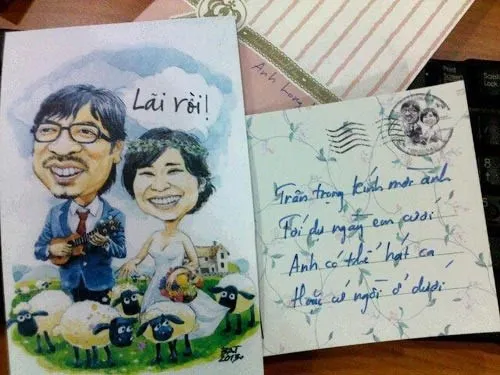 Lãi rồi!
BÚT
2013
Anh Long
Trân trọng kính mời anh
Tới dự ngày em cưới
Anh có thể hát ca
Hoặc cứ ngồi ở dưới